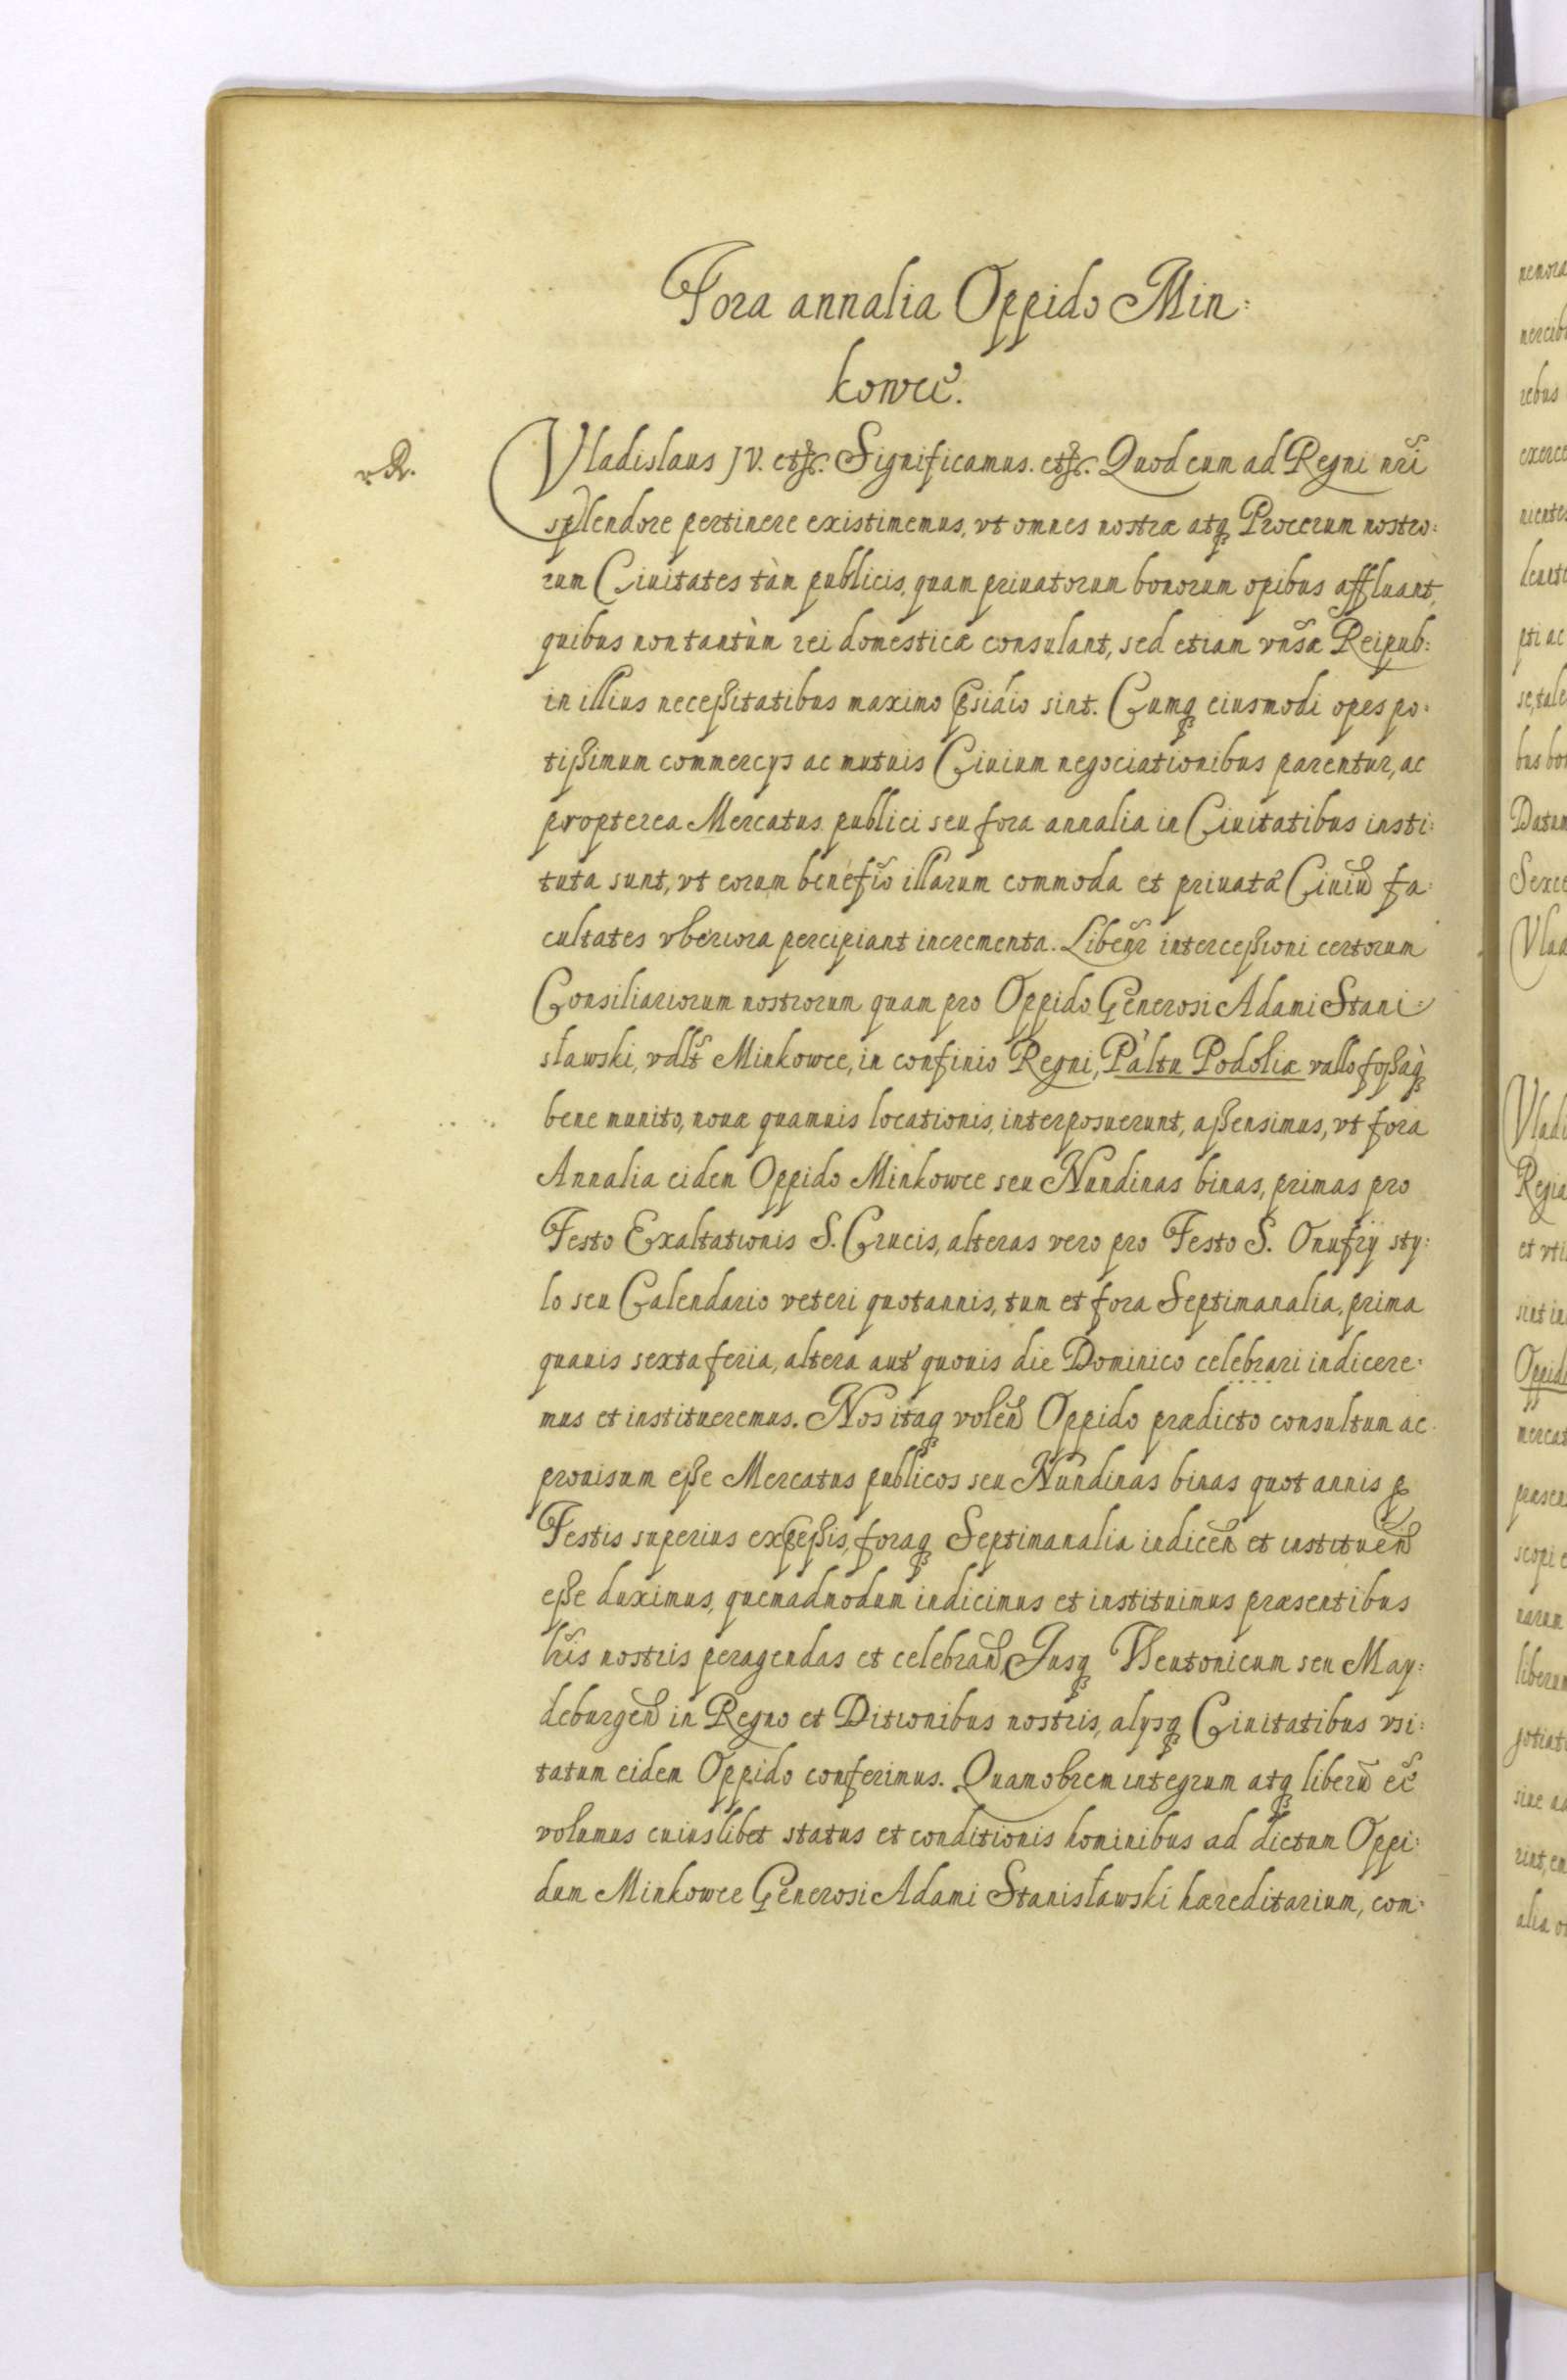 Fora annalia Oppido Min:
kowce.
Vladislaus IV. etc. Significamus. etc. Quod cum ad Regni nr̃i
splendore pertinere existimemus, vt omnes nostræ atq; Procerum nostro:
rum Ciuitates tàm publicis, quam priuatorum bonorum opibus affluant,
quibus non tantùm rei domesticæ consulant, sed etiam vnẽsæ Reipub:
in illius neceßitatibus maximo p̃sidio sint. Cumq; eiusmodi opes po:
tißimum commercys ac mutuis Ciuium negociationibus parentur, ac
propterea Mercatus publici seu fora annalia in Ciuitatibus insti:
tuta sunt, vt eorum benefio illarum commoda et priuatæ Ciuiũ fa:
cultates vberiora percipiant incrementa. Libenr̃ interceßioni certorum
Consiliariorum nostrorum quam pro Oppido Generosi Adami Stani:
sławski, vdlt̃ Minkowce, in confinio Regni, Pàltu Podoliæ vallo foßaq;
bene munito, nouæ quamuis locationis, interposuerunt, aßensimus, vt fora
Annalia eidem Oppido Minkowce seu Nundinas binas, primas pro
Festo Exaltationis S. Crucis, alteras vero pro Festo S. Onufrÿ sty:
lo seu Calendario veteri quotannis, tum et fora Septimanalia, prima
quauis sexta feria, altera aut̃ quouis die Dominico celebrari indicere:
mus et institueremus. Nos itaq; volen̄ Oppido prædicto consultum ac
prouisum eße Mercatus publicos seu Nundinas binas quot annis p
Festis superius exp̃ßis, foraq; Septimanalia indicen̄ et instituen̄
eße duximus, quemadmodum indicimus et instituimus præsentibus
lr̃is nostris peragendas et celebran̄, Jusq; Theutonicum seu May:
deburgen̄ in Regno et Ditionibus nostris, alysq; Ciuitatibus vsi:
tatum eidem Oppido conferimus. Quamobrem integrum atq; liberũ eẽ
volumus cuiuslibet status et conditionis hominibus ad dictum Oppi:
dum Minkowce Generosi Adami Stanisławski hæreditarium, com: